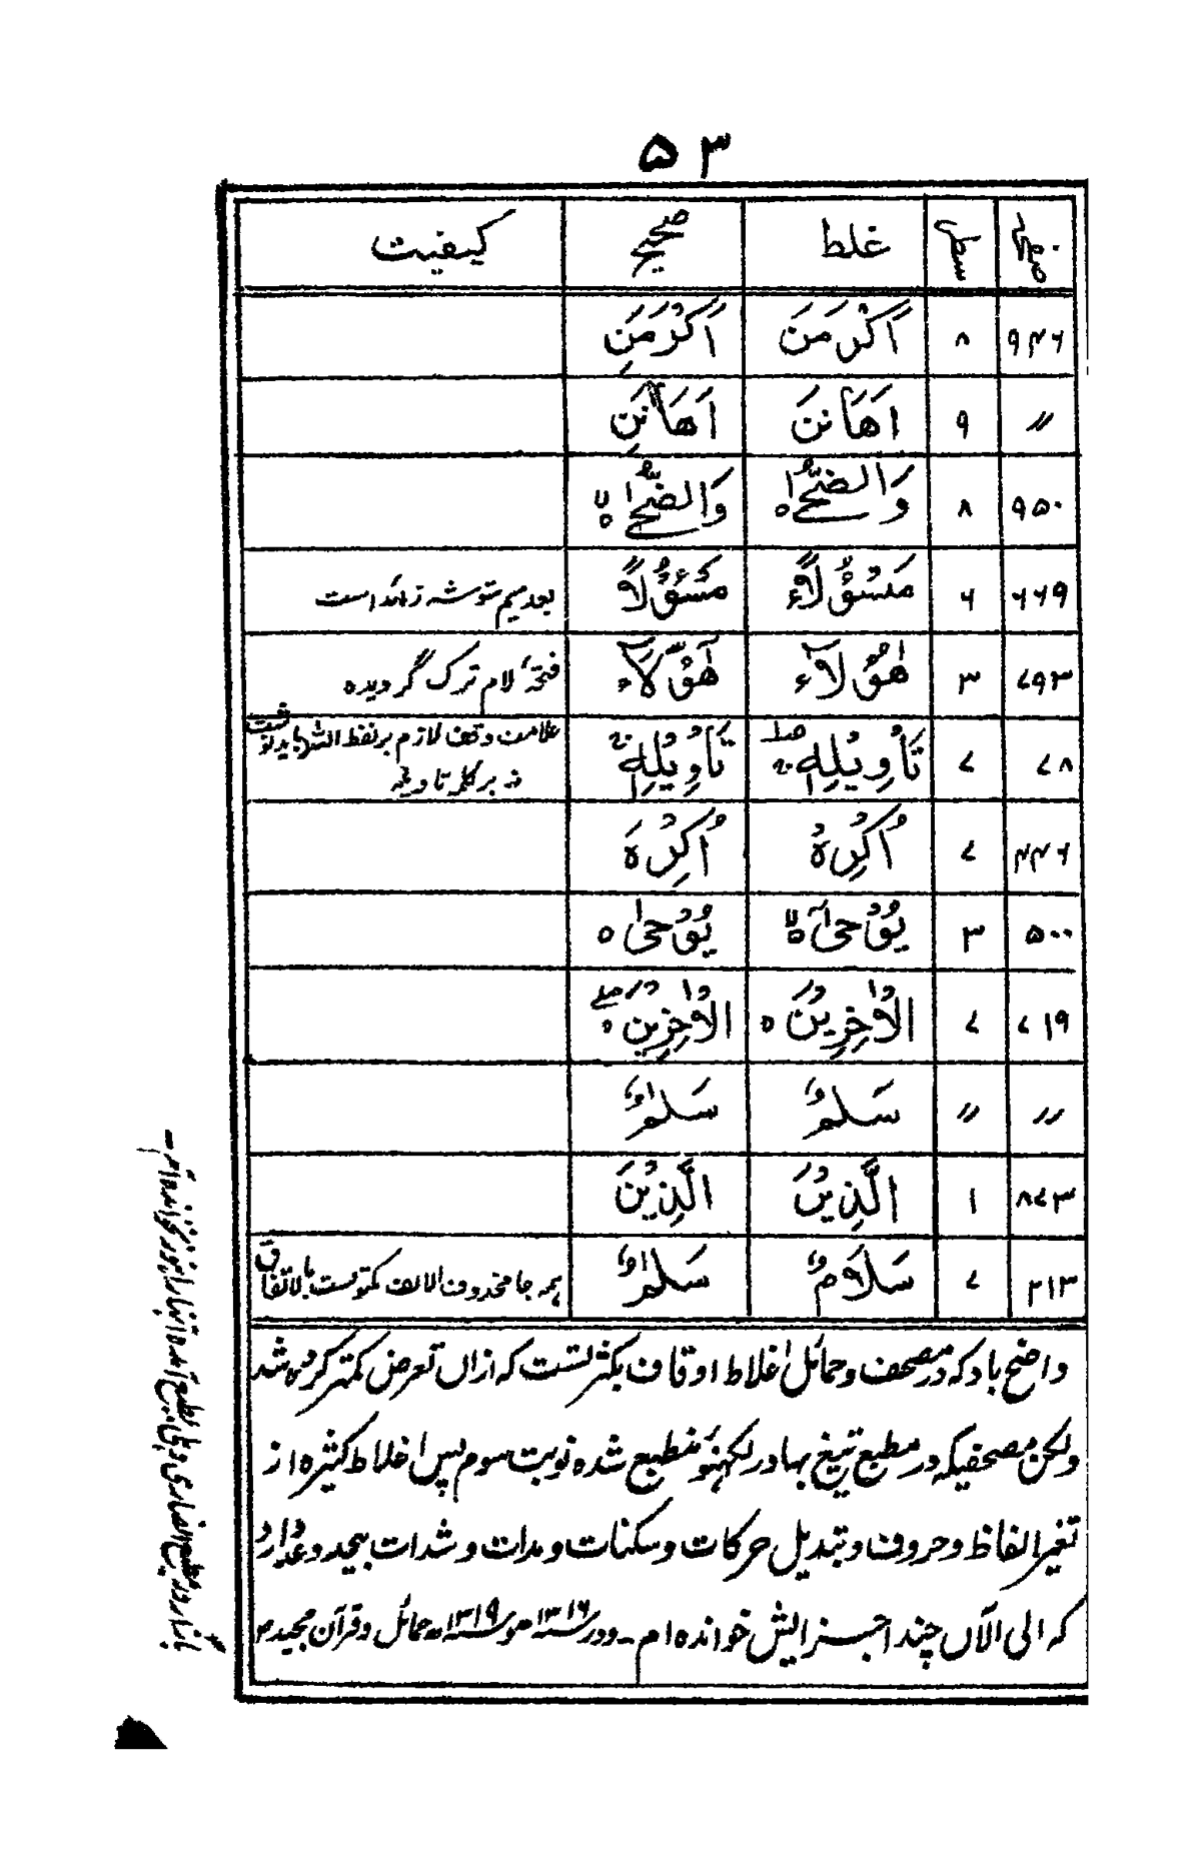 ۵۳
صفحہ سطر غلط صحیح کیفیت
۹۴۶ ۸ اَکْرَمَنَ اَکْرَمَنِ
〃 ۹ اَهَانَنَ اَهَانَنِ
۹۵۰ ۸ وَالضُّحٰے وَالضُّحٰے
۶۶۹ ۶ مَسْئُوْلًا مَسْئُوْلًا بعد میم شوشہ زائد است
۷۹۳ ۳ هٰؤُلَآءِ هٰؤُلَآءِ فتحۂ لام ترک گردیده
۷۸ ۷ تَاْوِیْلِهٖ تَاْوِیْلِهٖ علامت وقف لازم بر لفظ اللہ باید نوشت
نہ بر کلمہ تاویلہ
۴۴۶ ۷ اُکْرِهُ اُکْرِهَ
۵۰۰ ۳ یُوْحٰی یُوْحٰی
۷۱۹ ۷ الْاٰخِرِیْنَ الْاٰخِرِیْنَ
〃 〃 سَلمٌ سَلٰمٌ
۸۷۳ ۱ الَّذِیْنَ الَّذِیْنَ
۲۱۳ ۷ سَلَامٌ سَلٰمٌ ہمہ جا محذوف الالف مکتوبست بالاتفاق
واضح باد که در مصحف و حمائل اغلاط اوقاف بکثرتست که ازاں تعرض کمتر کرده شد
ولکن مصحفیکہ در مطبع تیغ بہادر لکہنؤ منطبع شده نوبت سوم پس اغلاط کثیره از
تغیر الفاظ و حروف و تبدیل حرکات و سکنات و مدات و شدات بیحد و عد دارد
که الی الآن چند اجزایش خوانده ام۔ و در ۱۳۱۶ھ و ۱۳۱۹ھ حمائل و قرآن مجید
در مطبع انصاری دہلی بطبع آمده